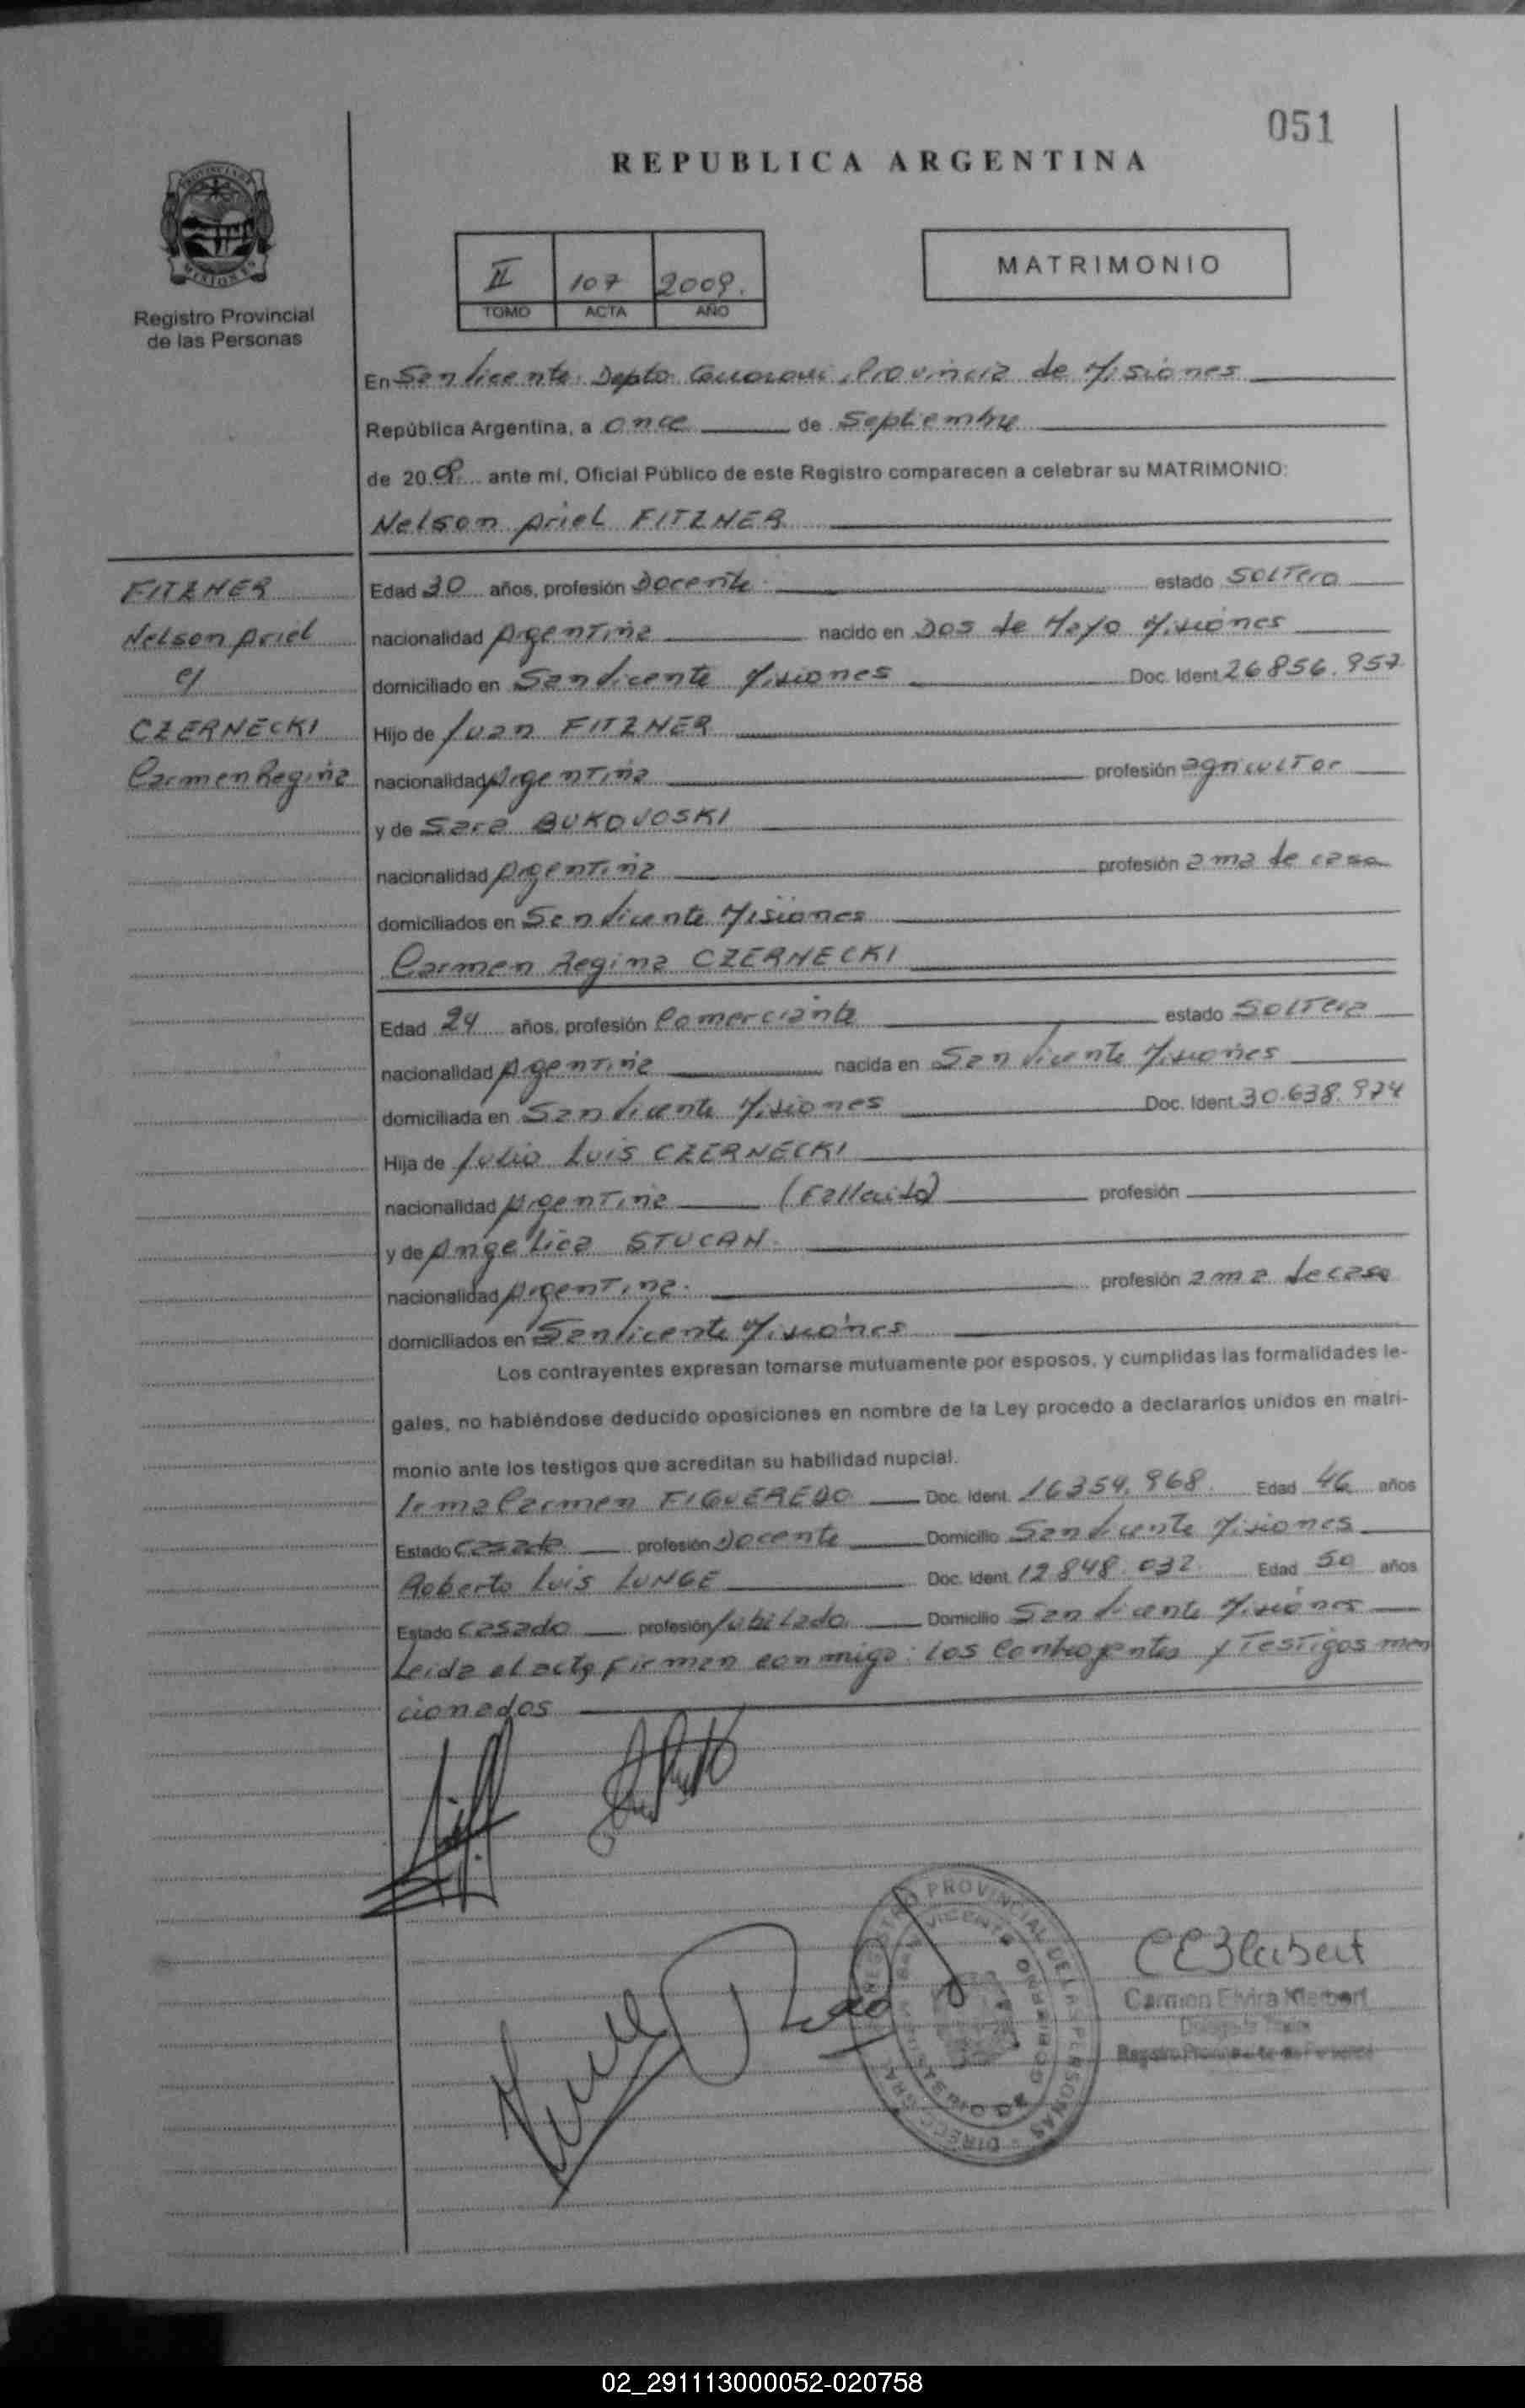 051
REPUBLICA ARGENTINA
II 107 2009.
TOMO ACTA AÑO
MATRIMONIO
Registro Provincial
de las Personas
En San Vicente Depto Guarani, Provincia de Misiones
República Argentina, a once de Septiembre
de 2009 ante mí, Oficial Público de este Registro comparecen a celebrar su MATRIMONIO:
Nelson Ariel FITZNER
FITZNER
Nelson Ariel
c/
CZERNECKI
Carmen Regina
Edad 30 años, profesión Docente estado Soltero
nacionalidad Argentina nacido en Dos de Mayo Misiones
domiciliado en San Vicente Misiones Doc. Ident. 26.856.957
Hijo de Juan FITZNER
nacionalidad Argentina profesión agricultor
y de Sara BUKOVOSKI
nacionalidad Argentina profesión ama de casa
domiciliados en San Vicente Misiones
Carmen Regina CZERNECKI
Edad 24 años, profesión Comerciante estado Soltera
nacionalidad Argentina nacida en San Vicente Misiones
domiciliada en San Vicente Misiones Doc. Ident. 30.638.974
Hija de Julio Luis CZERNECKI
nacionalidad Argentina (Fallecido) profesión
y de Angelica STUCAN.
nacionalidad Argentina. profesión ama de casa
domiciliados en San Vicente Misiones
Los contrayentes expresan tomarse mutuamente por esposos, y cumplidas las formalidades le-
gales, no habiéndose deducido oposiciones en nombre de la Ley procedo a declararlos unidos en matri-
monio ante los testigos que acreditan su habilidad nupcial.
Irma Carmen FIGUEREDO Doc. Ident. 16.354.968. Edad 46 años
Estado Casada profesión Docente Domicilio San Vicente Misiones
Roberto Luis LUNGE Doc. Ident. 12.848.032. Edad 50 años
Estado Casado profesión Jubilado Domicilio San Vicente Misiones
Leida el acta firman conmigo: los Contrayentes y Testigos men
cionados
REGISTRO PROVINCIAL DE LAS PERSONAS
DIRECC. GRAL.
SAN VICENTE
Carmen Elvira Kleibert
02_291113000052-020758